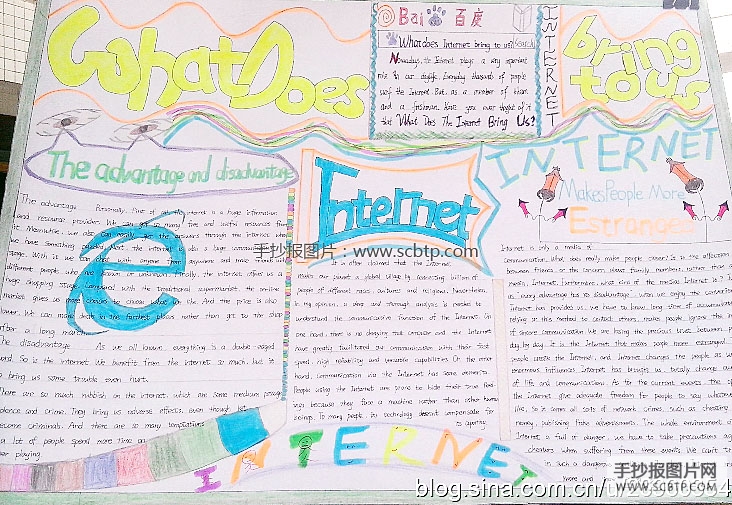 What Does
Internet
bring
to us
Bai 百度
What does Internet bring to us? Search
Nowadays, the Internet plays a very important
role in our daylife. Everyday thousands of people
surf the Internet. But as a member of
and a freshman, have you ever thought of it
that What Does The Internet Bring Us?
INTERNET
The advantage and disadvantage
The advantage Personally, first of all, the internet is a huge information
and resource provider. We can get so many free and useful resources from
it. Meanwhile, we also can easily get the answers through the internet when
we have something puzzled. Next, the internet is also a huge communication
stage. With it we can chat with anyone from anywhere and make friends with
different people who are known or unknown. Finally, the internet offers us a
huge shopping stage. Compared with the traditional supermarket, the online
market gives us more choices to choose what we like. And the price is also
lower. We can make deals in the fastest place rather than get to the shop
after a long march.
The disadvantage As we all known everything is a double-edged
sword. So is the Internet. We benefit from the internet so much, but it
bring us some trouble even hurt.
There are so much rubbish on the internet, which are some medium
violence and crime. They bring us adverse effects, even though let
become criminals. And there are so many temptations
a lot of people spend more time on
playing.
手抄报图片：www.scbtp.com
It is often claimed that the Internet
makes our planet a global village by connecting billion of
people of different races, cultures and religions. Nevertheless,
in my opinion, a deep and thorough analysis is needed to
understand the communicative function of the Internet. On
one hand, there is no denying that computer and the Internet
have greatly facilitated our communication with their fast
speed, high reliability and versatile capabilities. On the other
hand, communication via the Internet has some demerits.
People using the Internet are prone to hide their true feel-
ings because they face a machine rather than other human
beings. To many people, its technology doesn't compensate for
its
INTERNET
INTERNET
Makes People More
Estranged
Internet is only a media of
communication. What does really make people closer? is the affection
between friends or the concern about family numbers, rather than a
media, Internet. Furthermore, what kind of the media Internet is?
every advantage has its disadvantage, when we enjoy the convenience
Internet has provided us, we have to know long time of accumulation
relying on this method to contact others, makes people ignore the
of sincere communication. We are losing the precious trust between
day by day. It is the Internet that makes people more estranged.
people create the Internet, and Internet changes the people as well
enormous influences Internet has brings us totally change our
of life and communications. As for the current events. The
the Internet give adequate freedom for people to say whatever
like, so it comes all sorts of network crimes, such as cheating
money, publishing fake advertisements. The whole environment of
Internet is full of danger, we have to take precautions
cheaters when suffering from these events. We can't
in such a dangerous
more and
手抄报图片网
www.SCBTP.COM
blog.sina.com.cn/